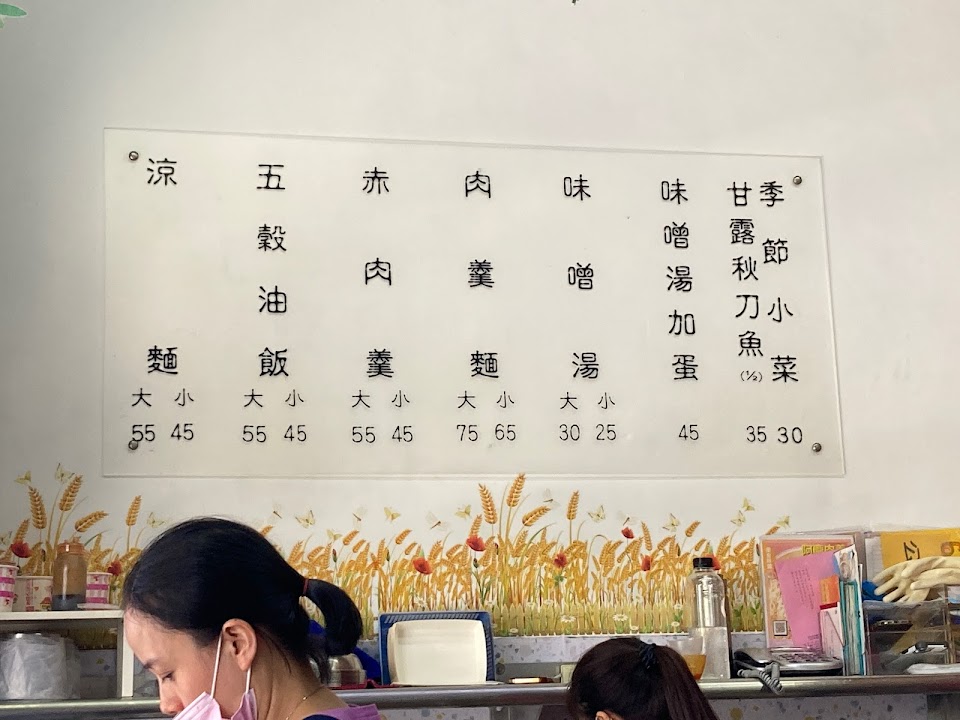 季節小菜
30
甘露秋刀魚(½)
35
味噌湯加蛋
45
味噌湯
大 小
30 25
肉羹麵
大 小
75 65
赤肉羹
大 小
55 45
五穀油飯
大 小
55 45
涼麵
大 小
55 45
公